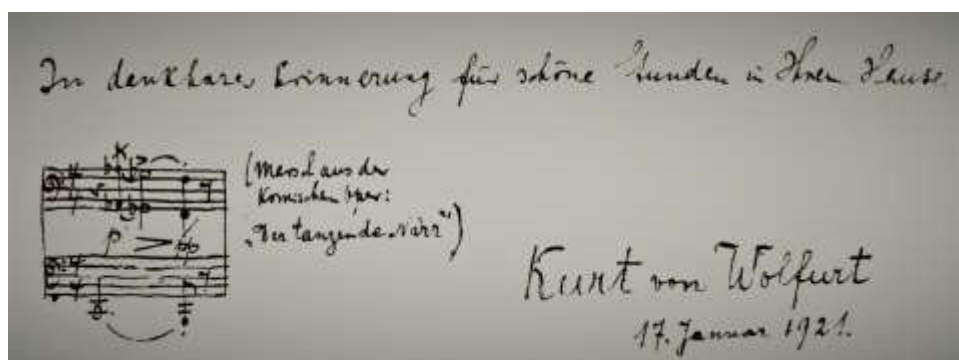 In dankbarer Erinnerung für schöne Stunden in Ihrem Hause.
(Marsch aus der
komischen Oper:
„Der tanzende Narr“)
p > pp
Kurt von Wolfurt
17. Januar 1921.